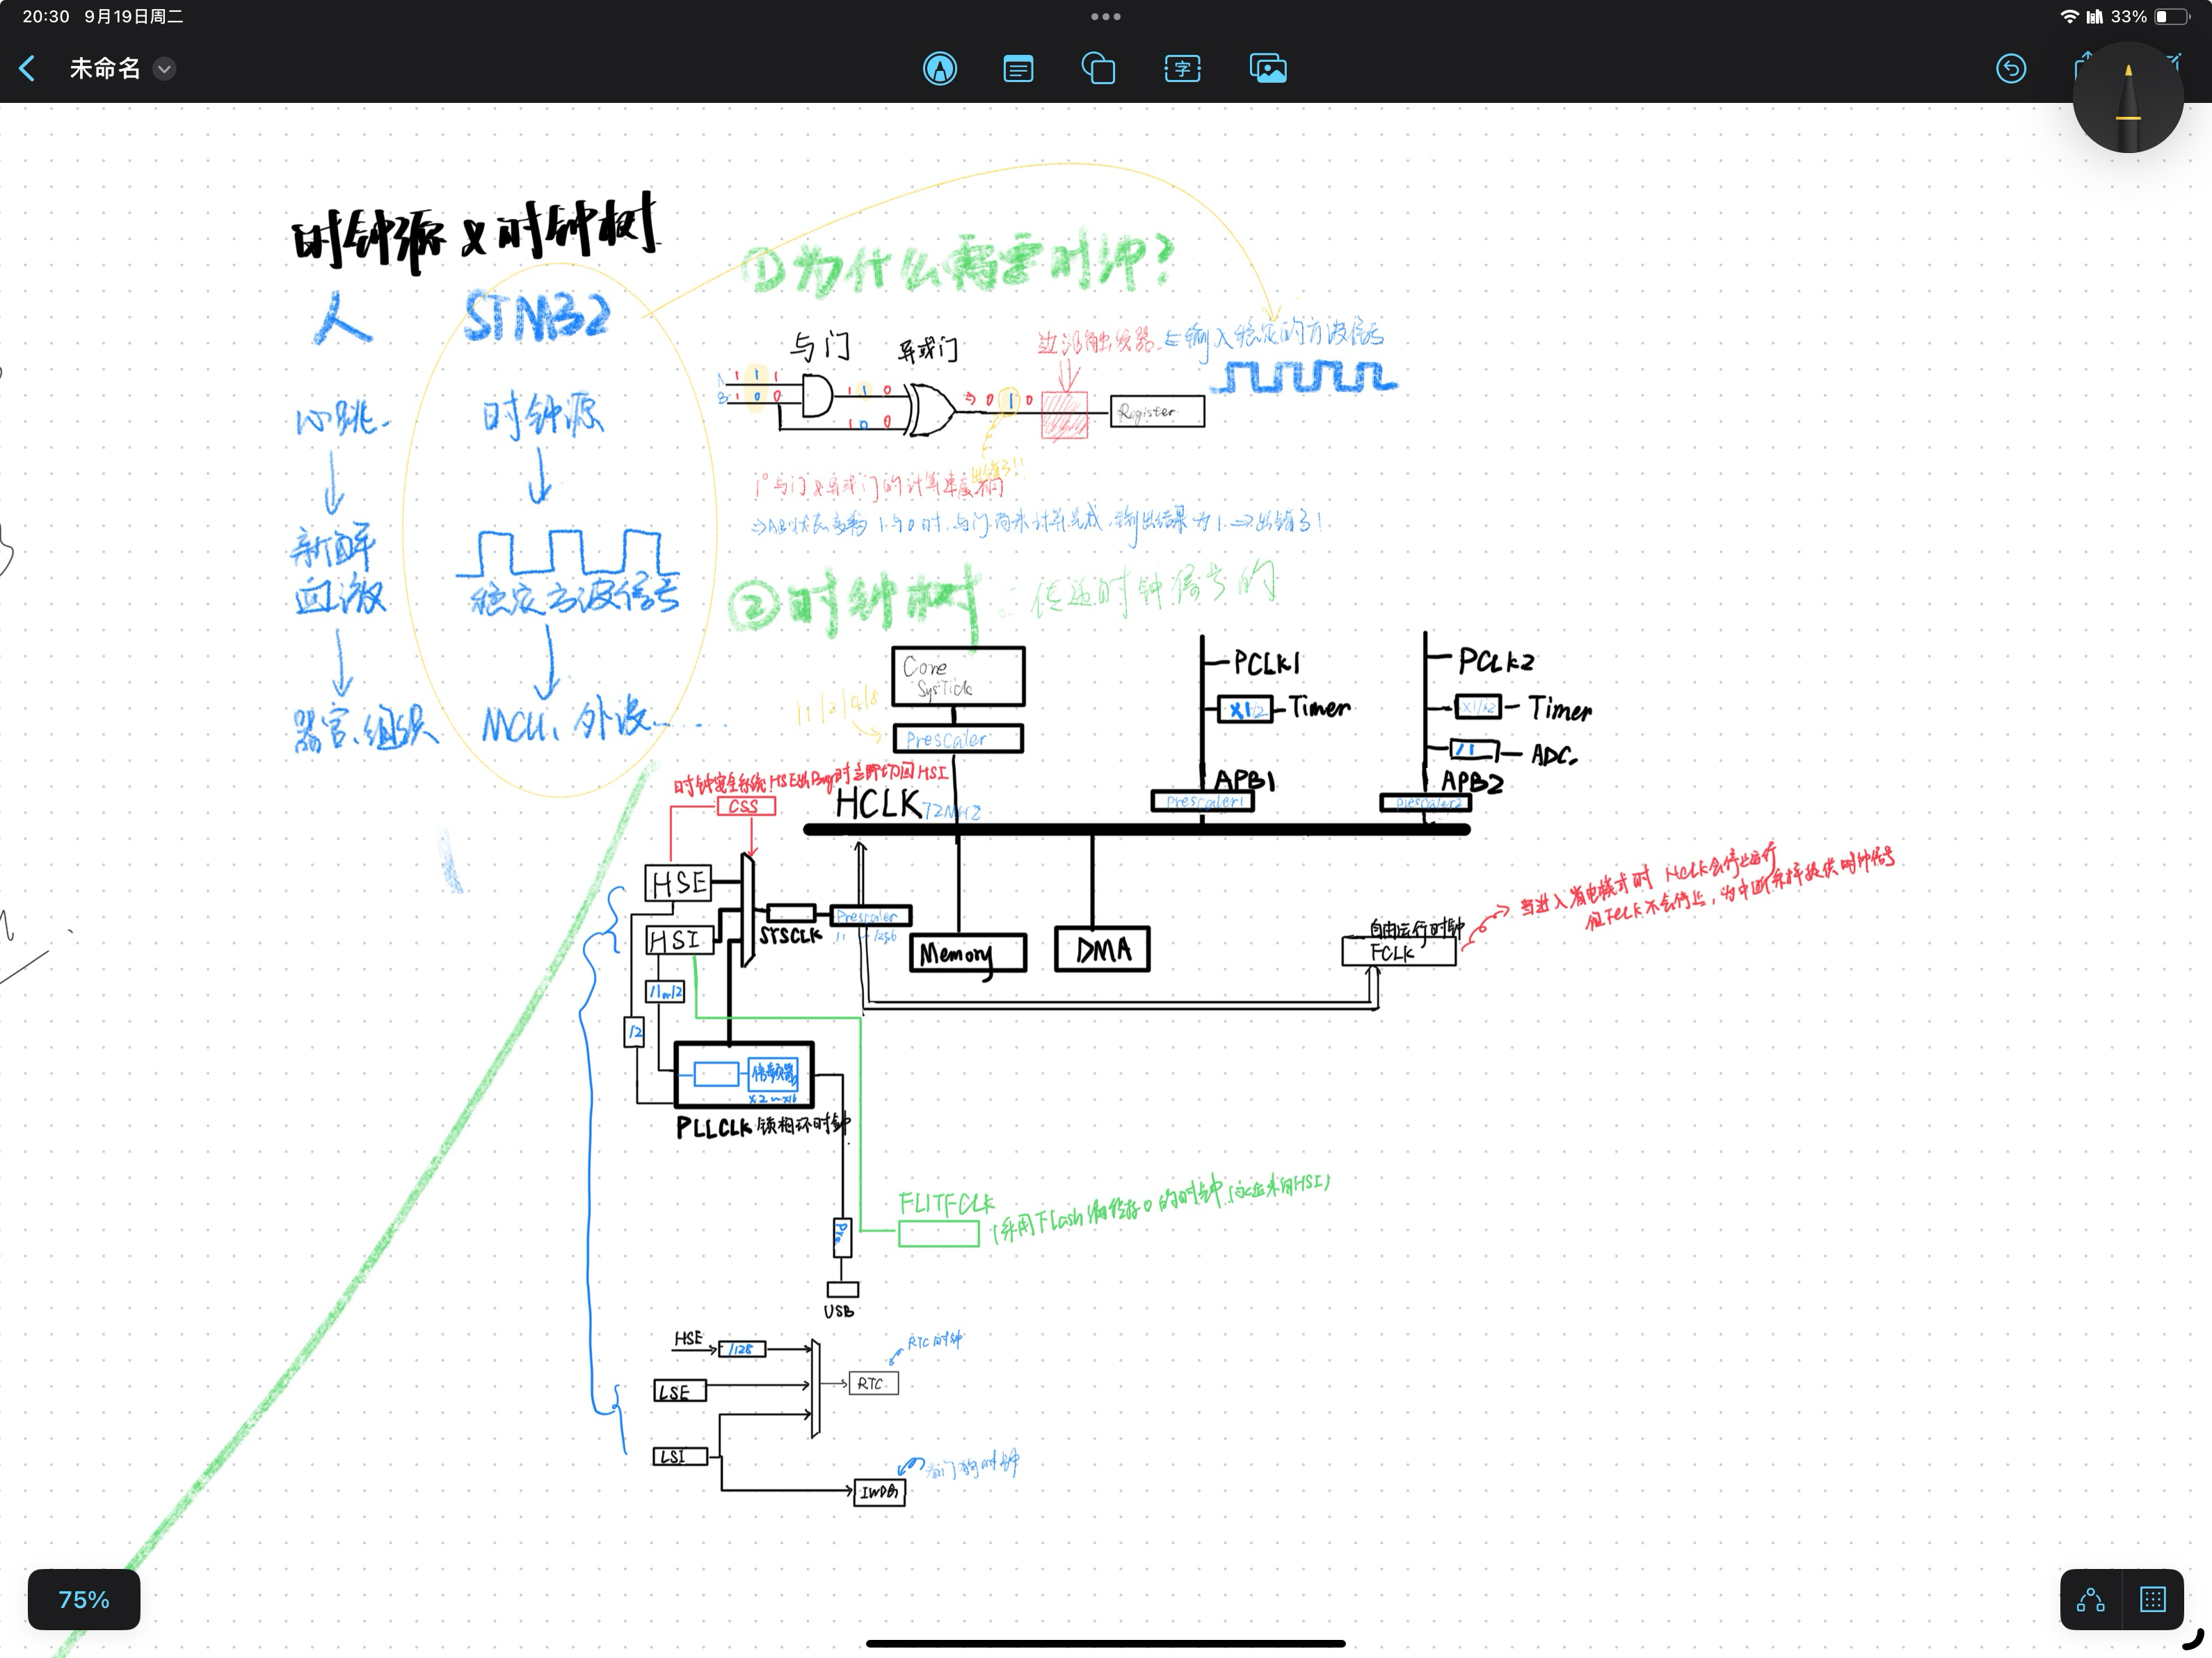 20:30 9月19日周二
33%
未命名
字
时钟源 & 时钟树
人 STM32
心跳
时钟源
新鲜
血液
稳定方波信号
器官、组织
MCU、外设......
①为什么需要时钟?
与门 异或门
边沿触发器
输入稳定的方波信号
A 1 1 1
B 1 0 0
1 1 0
1 0 0
⇒ 0 1 0
Register
出错了!!
1° 与门&异或门的计算速度不同
⇒AB状态变为 1与0时,与门尚未计算完成,输出结果为1 ⇒ 出错了!
②时钟树
传递时钟信号的
Core
SysTick
/1/2/4/8
Prescaler
PCLK1
X1/2 Timer
APB1
Prescaler1
PCLK2
X1/x2 Timer
ADC
APB2
Prescaler2
时钟安全系统!HSE出Bug时立即切回HSI
CSS
HCLK 72MHZ
HSE
HSI
SYSCLK
Prescaler
Memory
DMA
自由运行时钟
FCLK
当进入省电模式时 HCLK会停止运行
但FCLK不会停止,为中断采样提供时钟信号
/1or/2
/2
倍频器
x2~x16
PLLCLK 锁相环时钟
FLITFCLK
(采用Flash编程接口的时钟(永远来自HSI)
Pre
USB
HSE
/128
RTC时钟
LSE
RTC
LSI
看门狗时钟
IWDG
75%